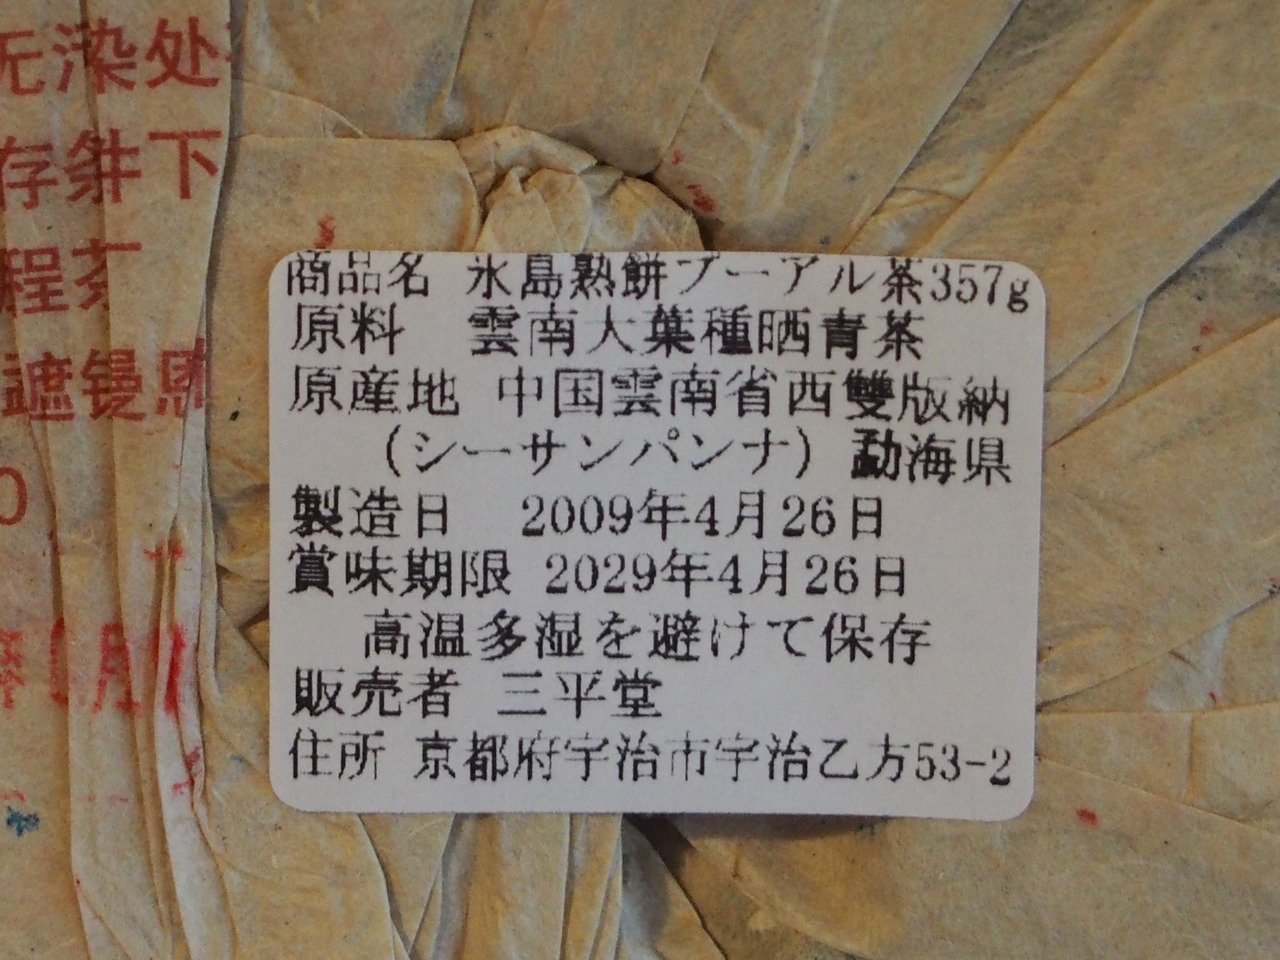 无染处
存件下
程
遮
0
月
商品名 氷島熟餅プーアル茶357g
原料 雲南大葉種晒青茶
原産地 中国雲南省西雙版納
(シーサンパンナ) 勐海県
製造日 2009年4月26日
賞味期限 2029年4月26日
高温多湿を避けて保存
販売者 三平堂
住所 京都府宇治市宇治乙方53-2